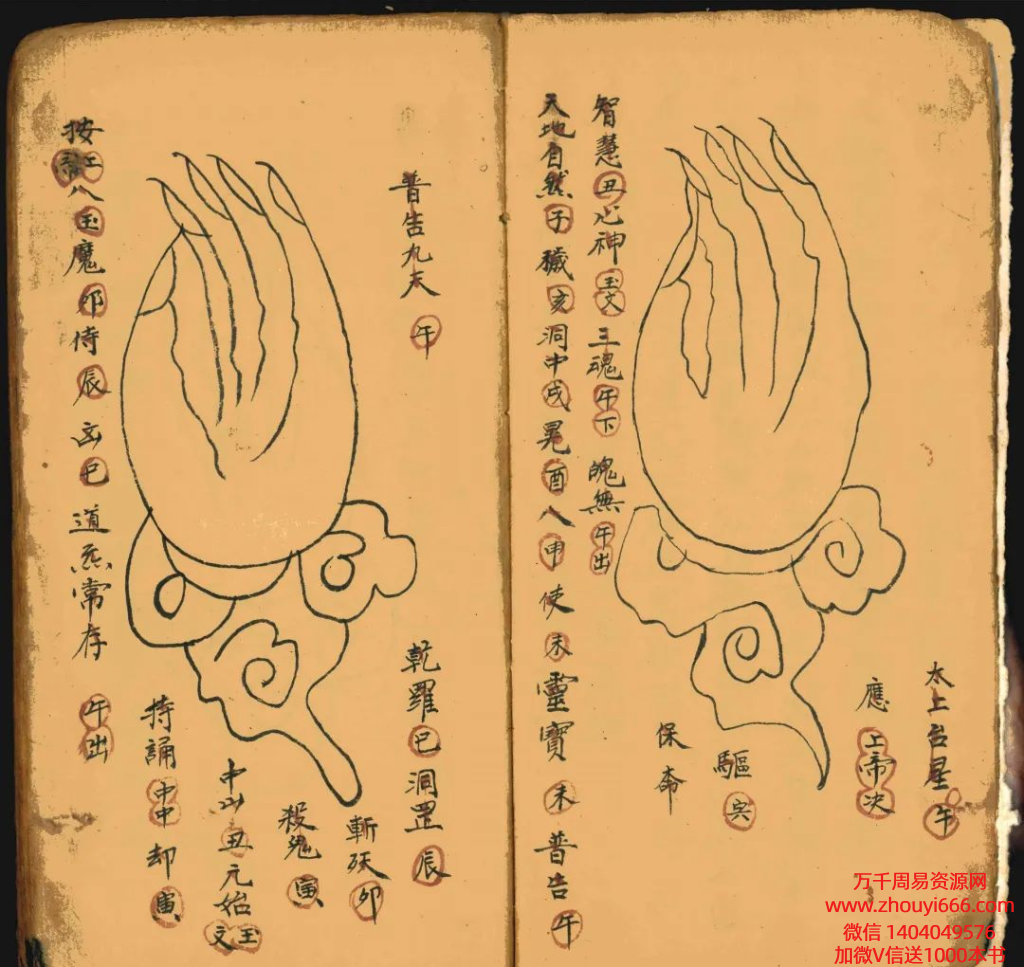 太上台星午
應上帝决
驅
保命
智慧丑心神玉文三魂午下魄無午出
天地自然子穢亥洞中戌晃酉八申使未靈寶未普告午
普告九天午
乾羅巳洞罡辰
斬妖卯
殺鬼寅
中山丑元始王文
持誦中中却寅
按八玉魔卯侍辰凶巳道炁常存午出
万千周易资源网
www.zhouyi666.com
微信 1404049576
加微V信送1000本书